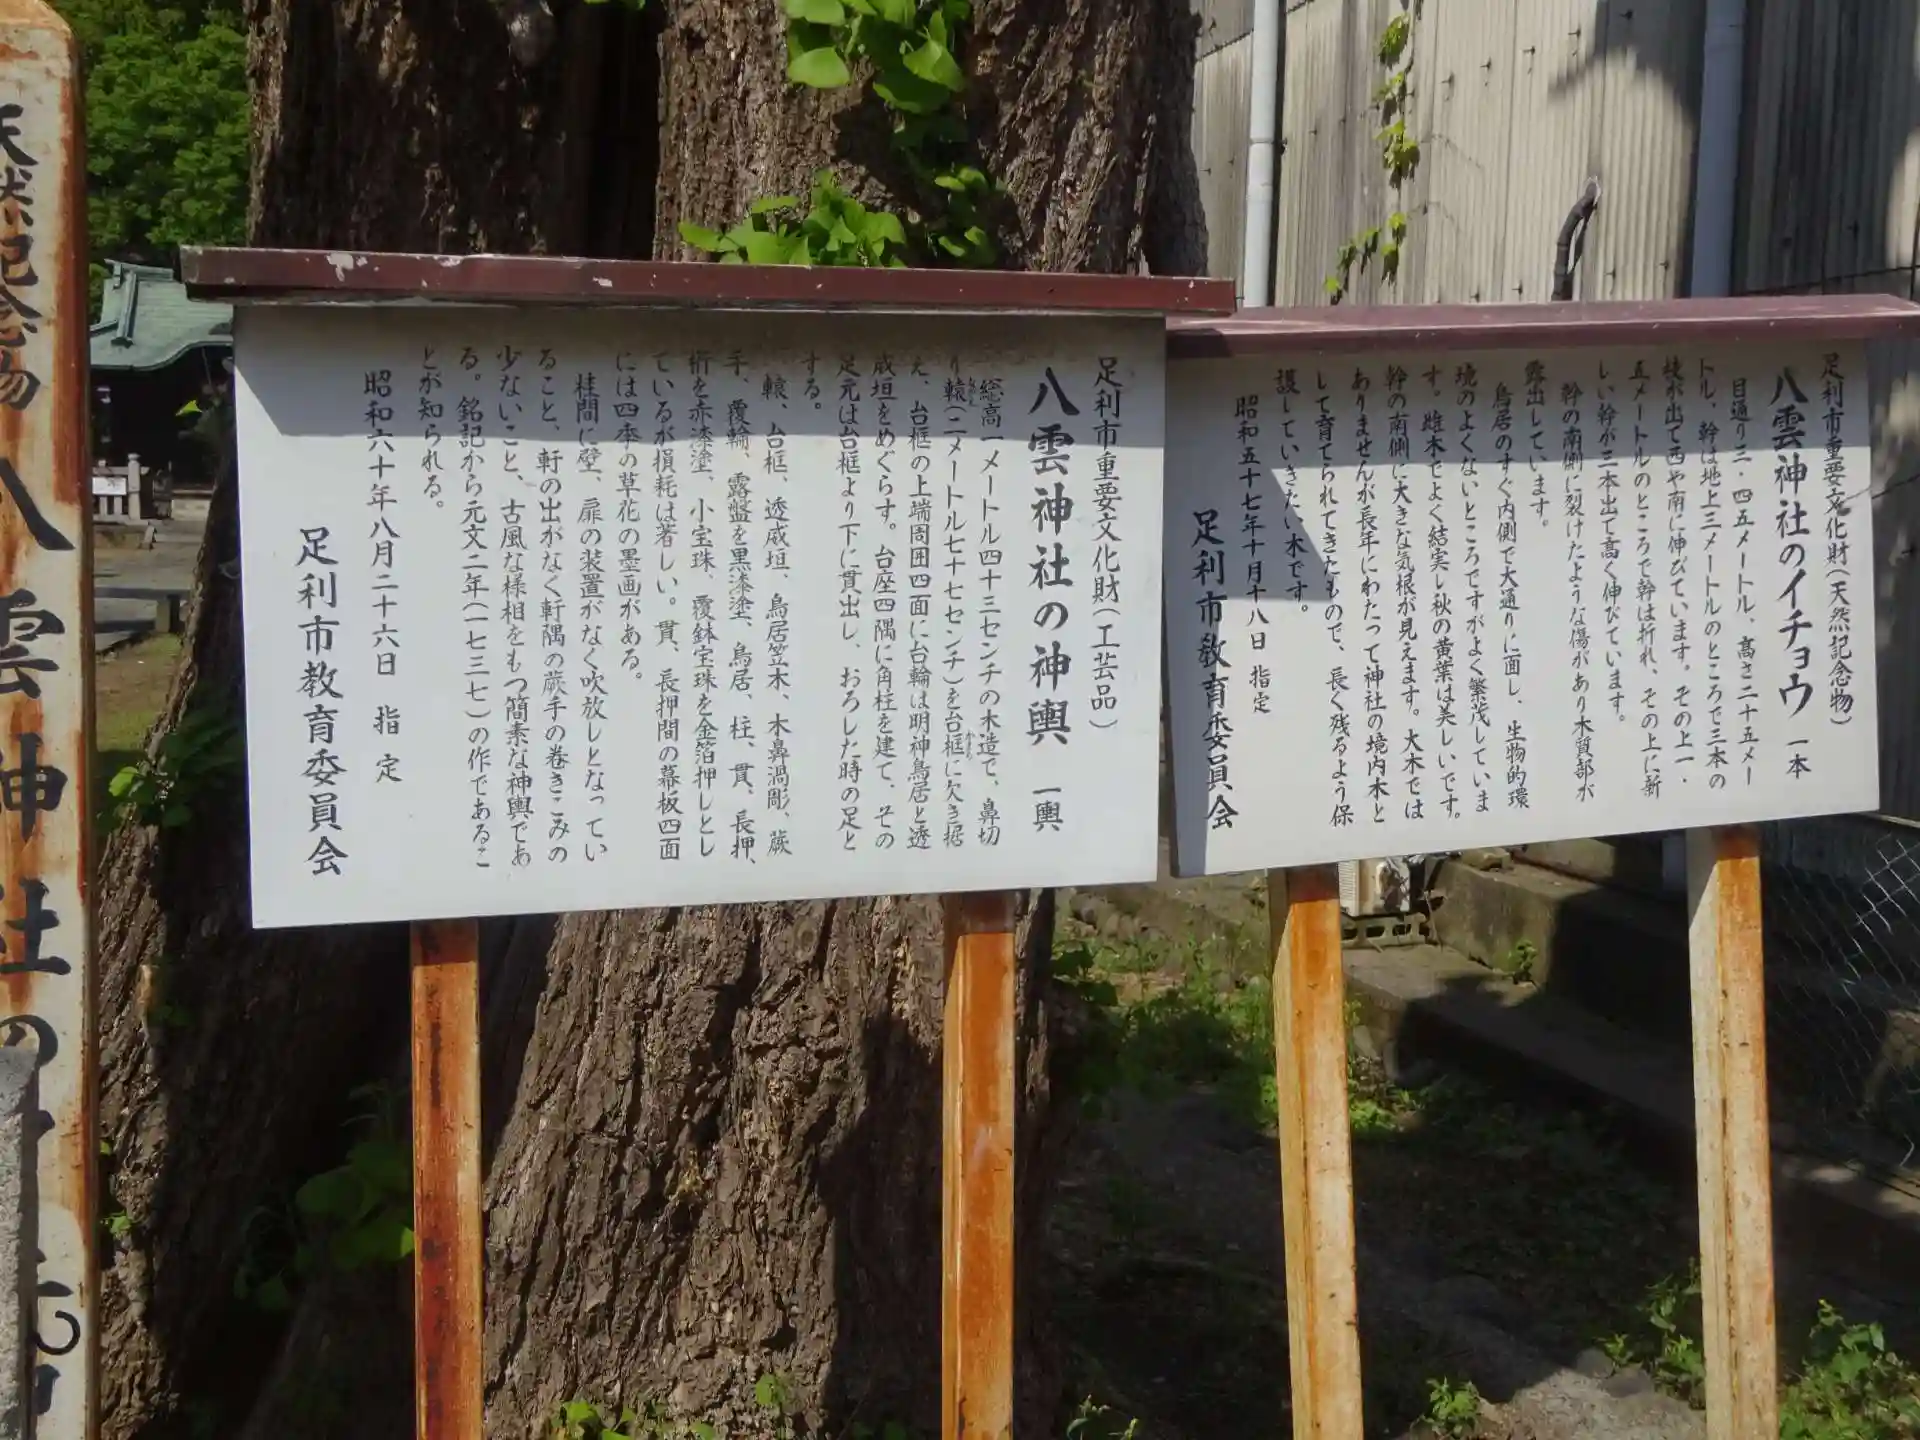 足利市重要文化財(天然記念物)
八雲神社のイチョウ 一本
目通り三・四五メートル、高さ二十五メー
トル、幹は地上三メートルのところで三本の
枝が出て西や南に伸びています。その上一・
五メートルのところで幹は折れ、その上に新
しい幹が三本出て高く伸びています。
幹の南側に裂けたような傷があり木質部が
露出しています。
鳥居のすぐ内側で大通りに面し、生物的環
境のよくないところですがよく繁茂していま
す。雌木でよく結実し秋の黄葉は美しいです。
幹の南側に大きな気根が見えます。大木では
ありませんが長年にわたって神社の境内木と
して育てられてきたもので、長く残るよう保
護していきたい木です。
昭和五十七年十月十八日 指定
足利市教育委員会
足利市重要文化財(工芸品)
八雲神社の神輿 一輿
総高一メートル四十三センチの木造で、鼻切
り轅(二メートル七十七センチ)を台框に欠き据
え、台框の上端周囲四面に台輪は明神鳥居と透
成垣をめぐらす。台座四隅に角柱を建て、その
足元は台框より下に貫出し、おろした時の足と
する。
轅、台框、透成垣、鳥居笠木、木鼻渦彫、蕨
手、覆輪、露盤を黒漆塗、鳥居、柱、貫、長押、
桁を赤漆塗、小宝珠、覆鉢宝珠を金箔押しとし
ているが損耗は著しい。貫、長押間の幕板四面
には四季の草花の墨画がある。
柱間に壁、扉の装置がなく吹放しとなってい
ること、軒の出がなく軒隅の蕨手の巻きこみの
少ないこと、古風な様相をもつ簡素な神輿であ
る。銘記から元文二年(一七三七)の作であるこ
とが知られる。
昭和六十年八月二十六日 指定
足利市教育委員会
天然記念物 八雲神社の